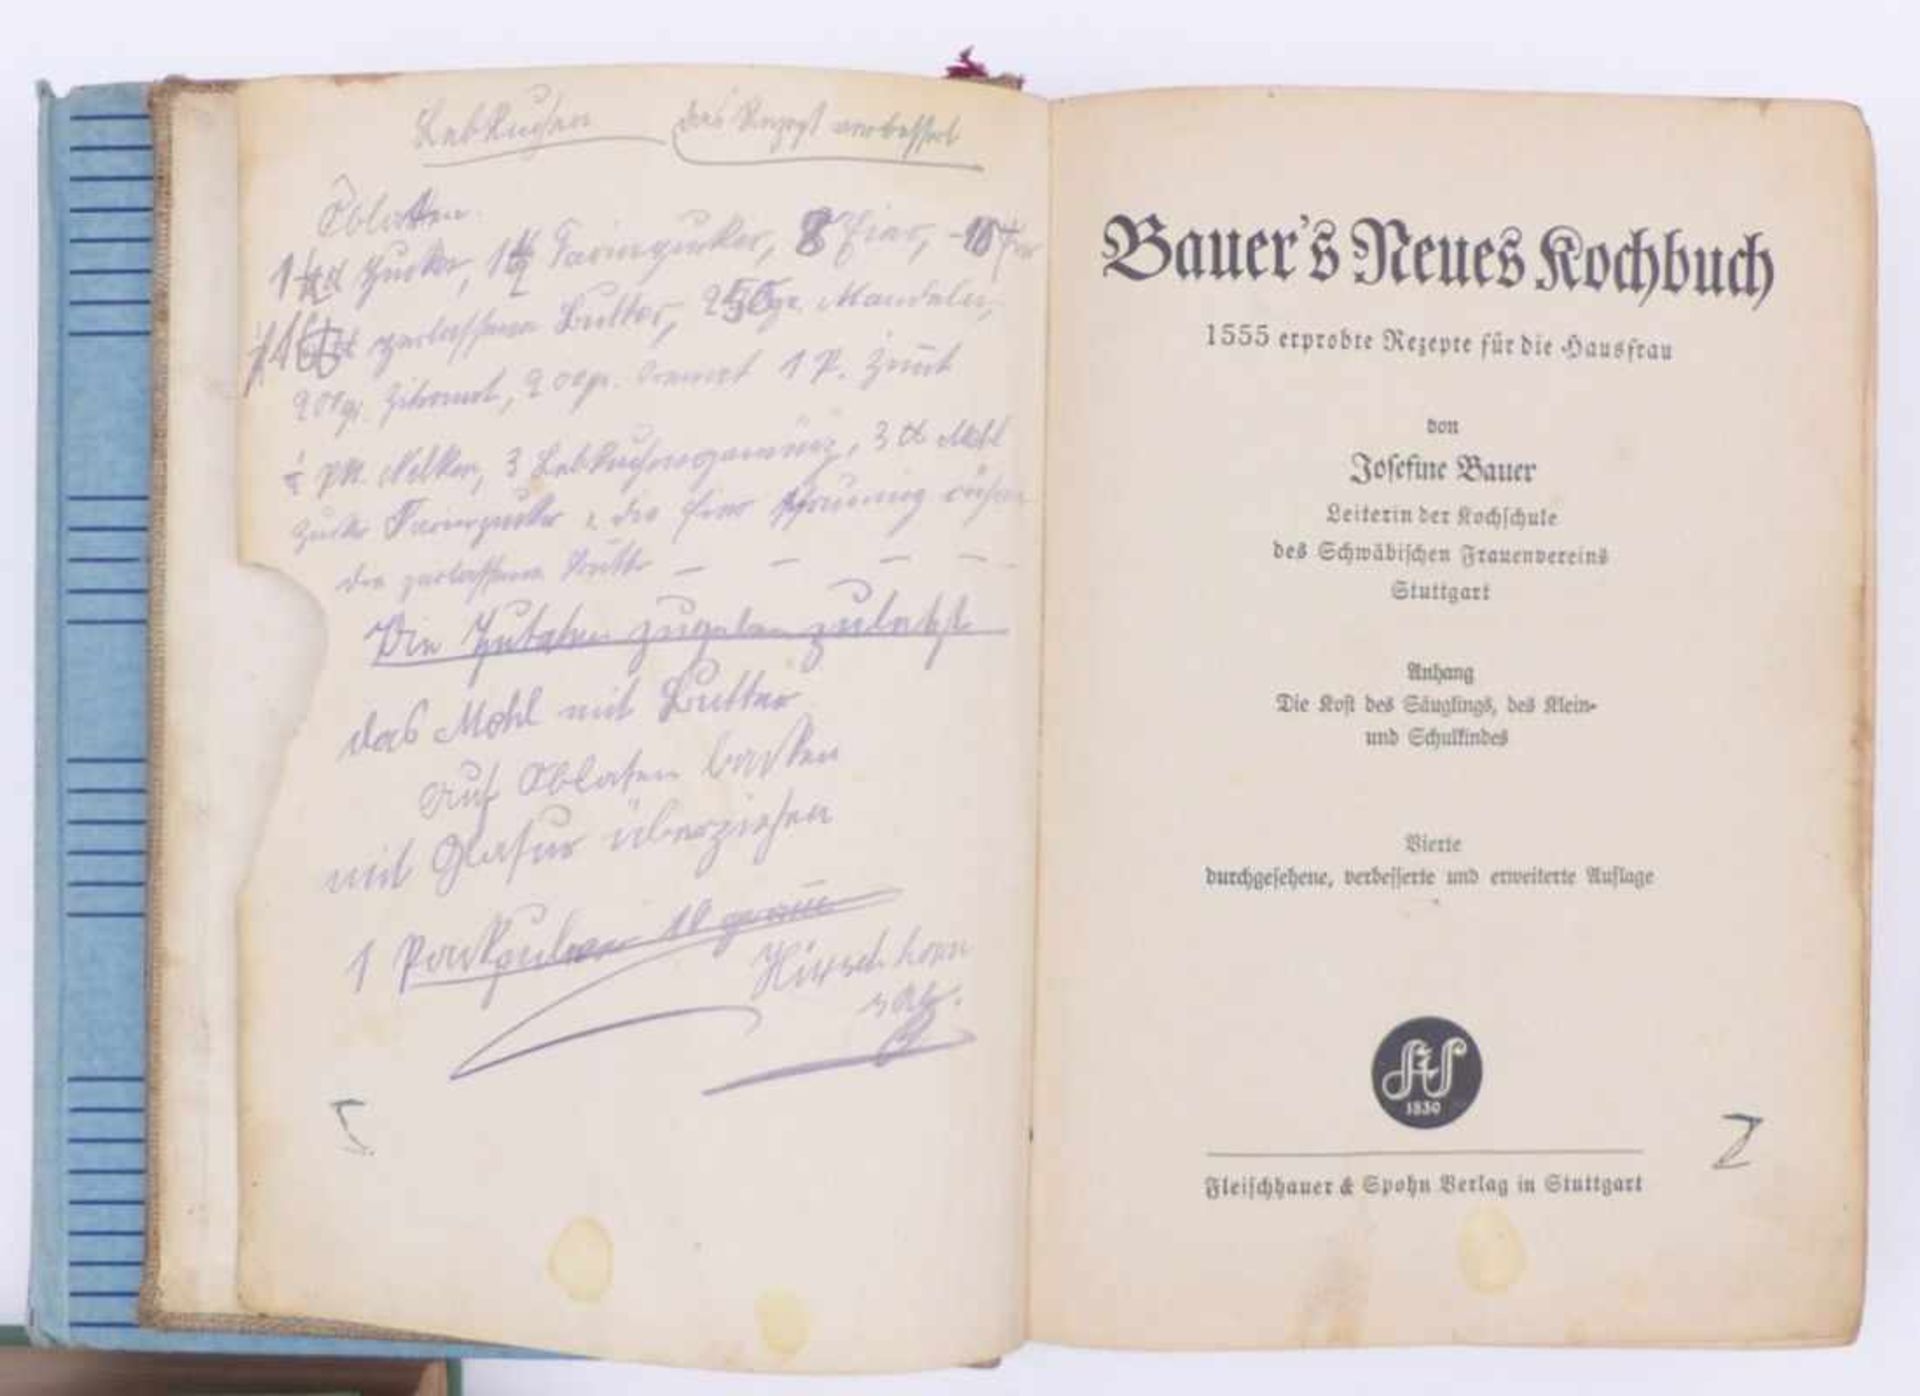 Lebkuchen das Rezept verbessert
Oblaten.
Zucker, Farinzucker, 8 Eier,
zerlassene Butter, 250 gr. Mandeln,
Zitronat, 1 P. Zimt
Nelken, 3 Lebkuchengewürz, 3 ℔ Mehl
Zucker Farinzucker die Eier schaumig rühren
die zerlassene Butter — — — —
Die Zutaten zugeben zuletzt
das Mehl mit Butter
auf Oblaten backen
mit Glasur überziehen
1 Backpulver 10 gramm
Hirschhorn
salz.
Bauer's Neues Kochbuch
1555 erprobte Rezepte für die Hausfrau
von
Josefine Bauer
Leiterin der Kochschule
des Schwäbischen Frauenvereins
Stuttgart
Anhang
Die Kost des Säuglings, des Klein-
und Schulkindes
Vierte
durchgesehene, verbesserte und erweiterte Auflage
1830
Fleischhauer & Spohn Verlag in Stuttgart